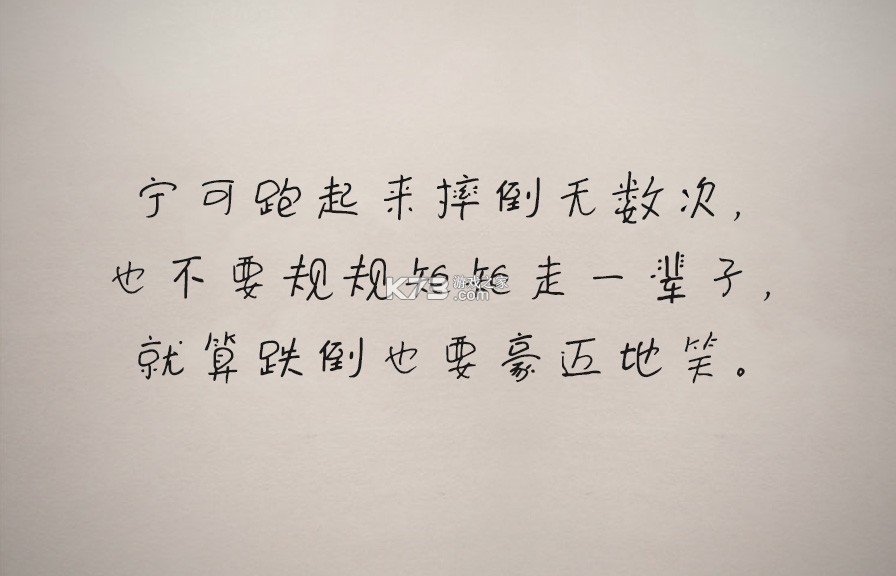 宁可跑起来摔倒无数次,
也不要规规矩矩走一辈子,
就算跌倒也要豪迈地笑。
K73 游戏之家
.com